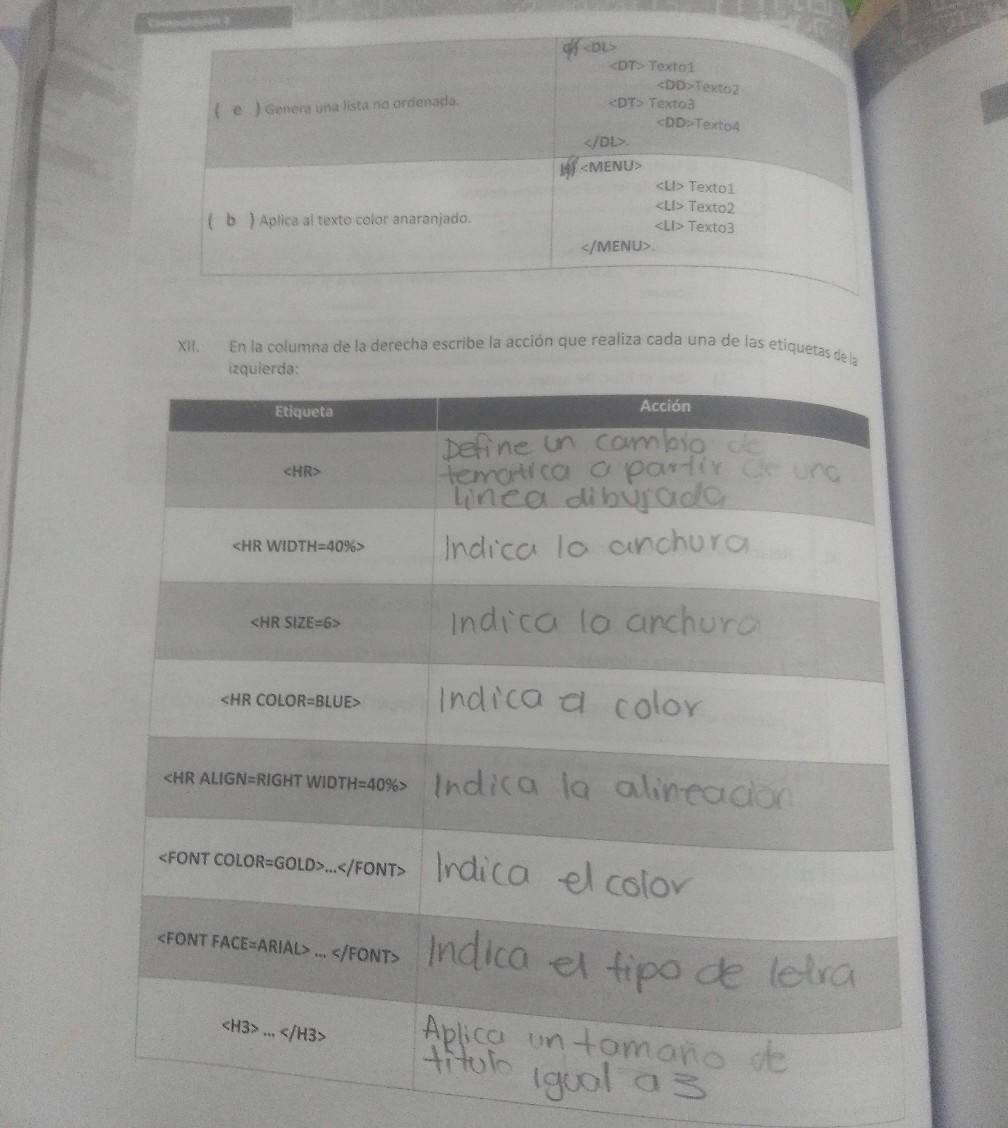 Computación 3
<DL>
<DT> Texto1
<DD>Texto2
( e ) Genera una lista no ordenada.
<DT> Texto3
<DD>Texto4
</DL>.
<MENU>
<LI> Texto1
<LI> Texto2
( b ) Aplica al texto color anaranjado.
<LI> Texto3
</MENU>.
XII. En la columna de la derecha escribe la acción que realiza cada una de las etiquetas de la
izquierda:
Etiqueta Acción
<HR>
Define un cambio de
tematica a partir de una
linea dibujada
<HR WIDTH=40%> Indica la anchura
<HR SIZE=6> Indica la anchura
<HR COLOR=BLUE> Indica el color
<HR ALIGN=RIGHT WIDTH=40%> Indica la alineación
<FONT COLOR=GOLD>...</FONT> Indica el color
<FONT FACE=ARIAL> ... </FONT> Indica el tipo de letra
<H3> ... </H3>
Aplica un tamaño de
titulo igual a 3